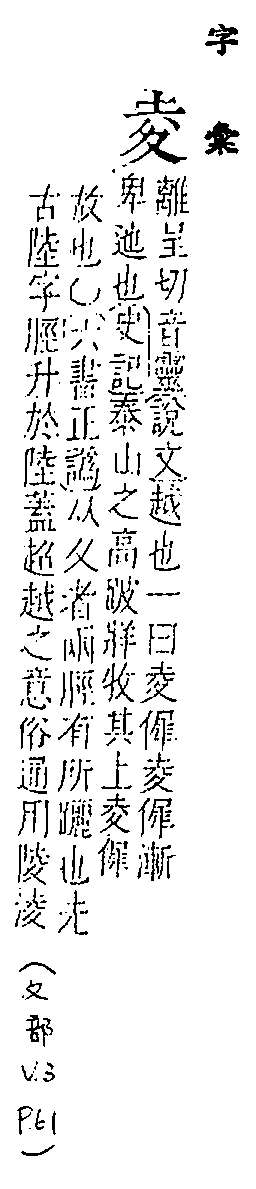 字彙
夌
離呈切音靈說文越也一曰夌𢕌夌𢕌漸
卑迆也史記泰山之高跛牂牧其上夌𢕌
故也〇六書正譌从夊者兩脛有所躧也圥
古陸字脛升於陸蓋超越之意俗通用陵淩
(夊部
V.3
P.61)